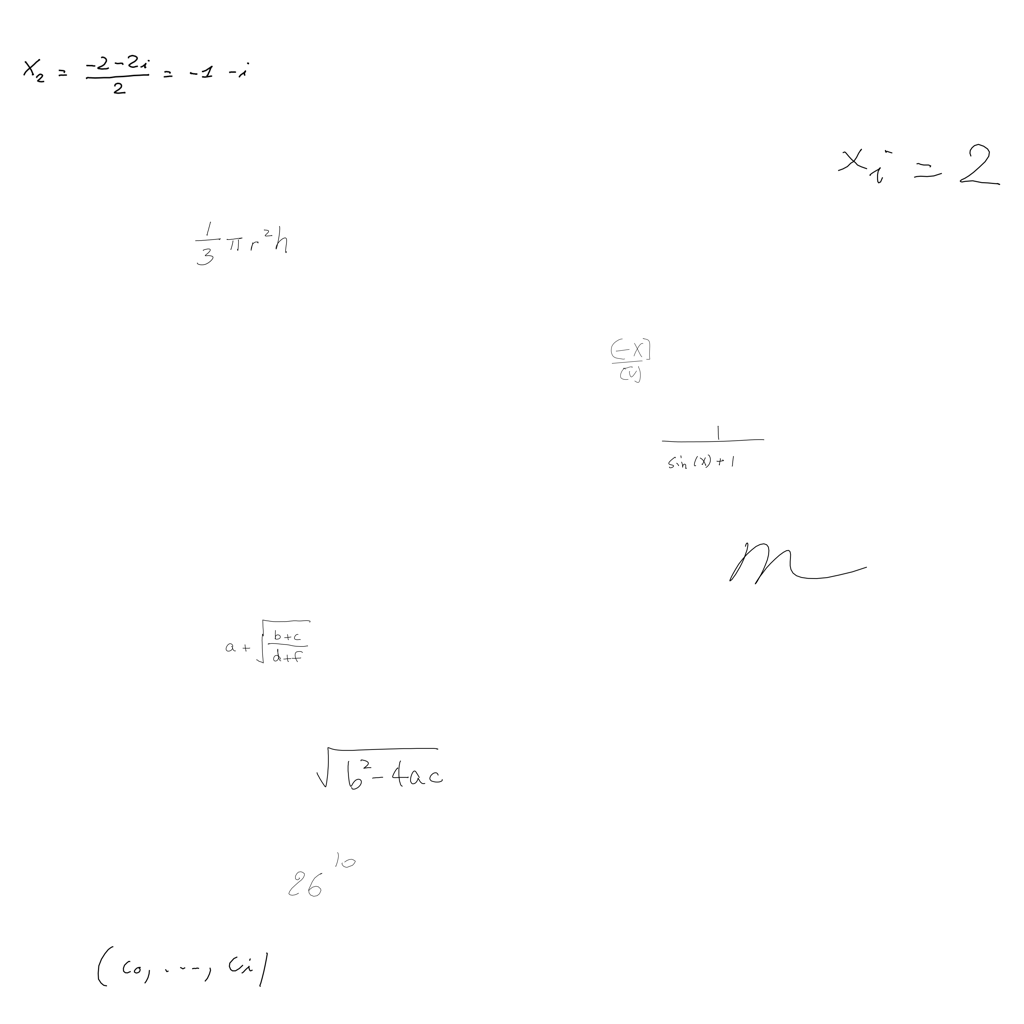 x_2 = \frac{-2-2i}{2} = -1 - i
x_i = 2
\frac{1}{3} \pi r^2 h
\frac{(-x]}{(v)}
\frac{1}{sin(x)+1}
m
a + \sqrt{\frac{b+c}{d+f}}
\sqrt{b^2 - 4ac}
26^{10}
(c_0, ..., c_i)